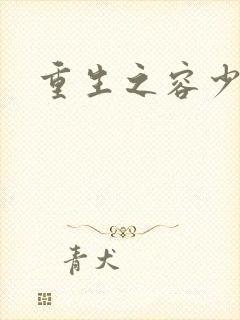 重生之容少
青犬